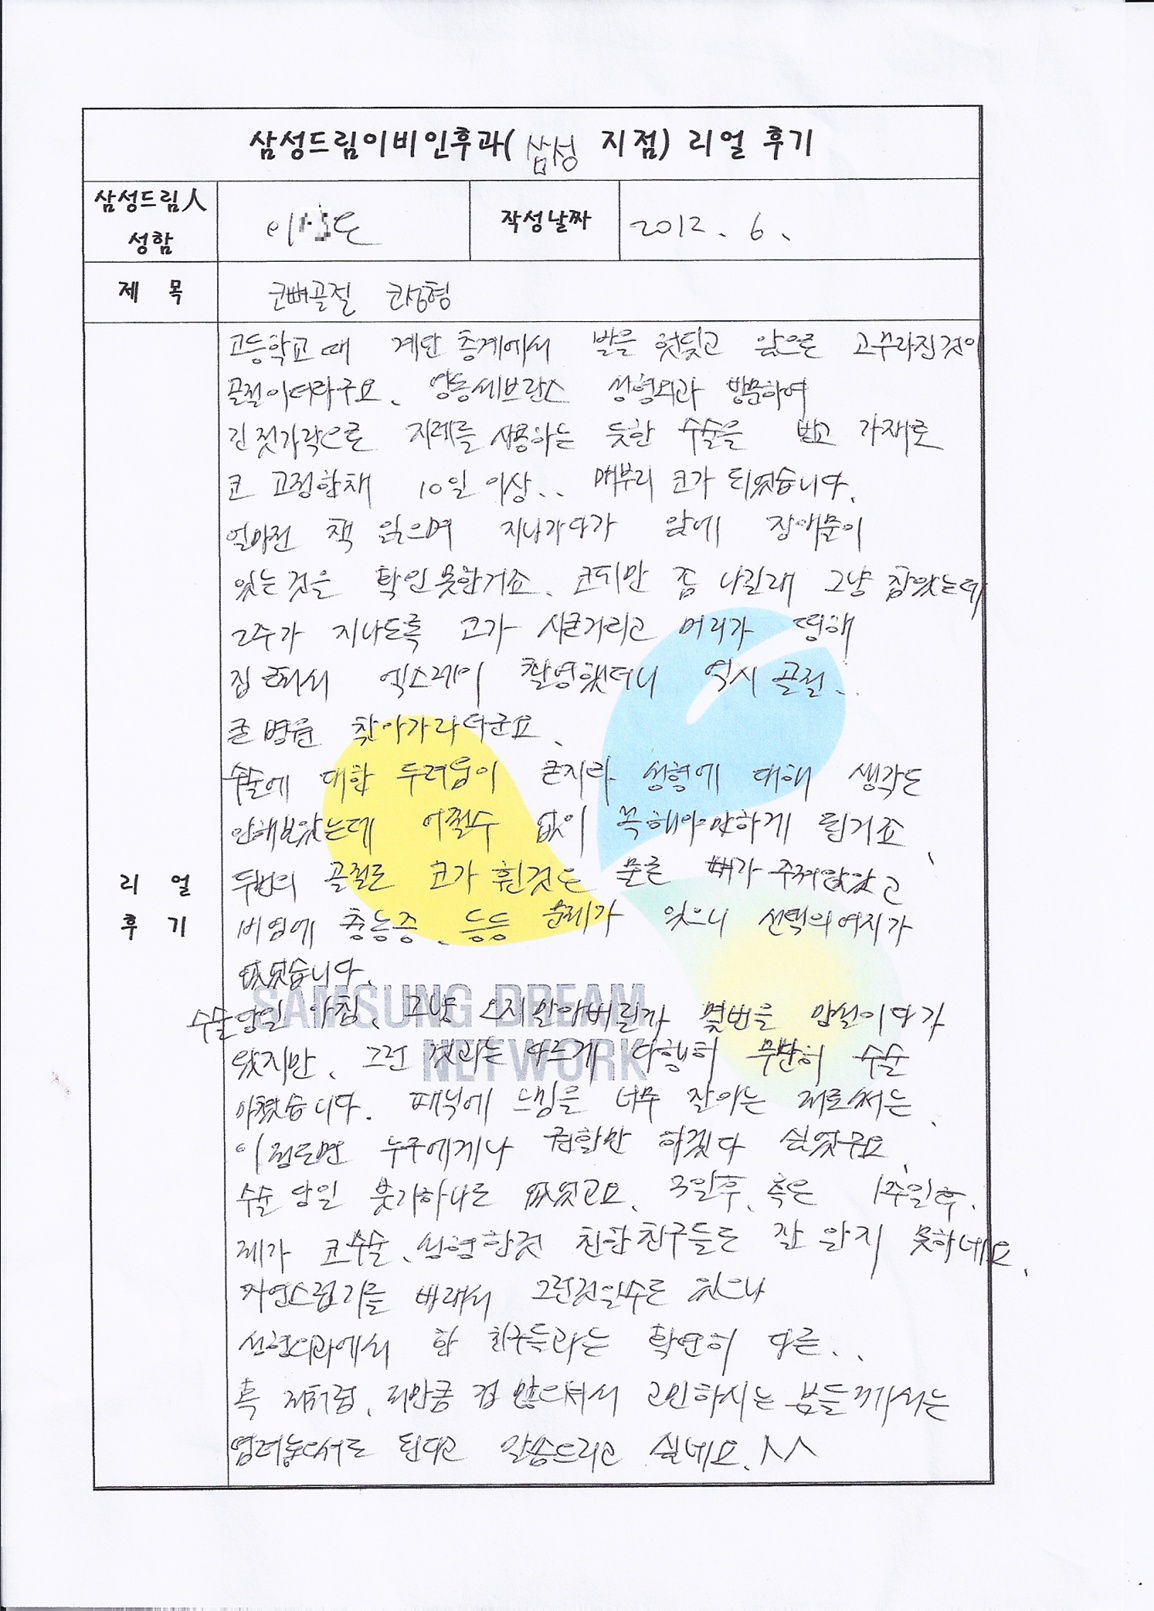 삼성드림이비인후과( 삼성 지점) 리얼 후기
삼성드림人
성함
작성날짜
2012. 6.
제 목
코뼈골절 코성형
고등학교 때 계단 층계에서 발을 헛딛고 앞으로 고꾸라진것이
골절이더라구요. 영동세브란스 성형외과 방문하여
긴 젓가락으로 지레를 사용하는 듯한 수술을 받고 가재로
코 고정한채 10일 이상.. 매부리 코가 되었습니다.
얼마전 책 읽으며 지나가다가 앞에 장애물이
있는것을 확인 못한거죠. 코피만 좀 나길래 그냥 참았는데
2주가 지나도록 코가 시큰거리고 머리가 띵해
집 엑스레이 촬영했더니 역시 골절..
큰 병원 찾아가라더군요.
수술에 대한 두려움이 큰지라 성형에 대해 생각도
안해보았는데 어쩔수 없이 꼭해야만하게 된거죠.
두번의 골절로 코가 휜것은 물론 뼈가 주저앉았고
비염에 축농증, 등등 문제가 있으니 선택의여지가
없었습니다.
수술당일 아침, 그냥 몇번을 망설이다가
왔지만, 그런 것과는 다르게 다행히 무난히 수술
마쳤습니다. 느낌을 너무 잘아는 저로써는
이정도면 누구에게나 권할만 하겠다 싶었구요.
수술 당일 붓기하나도 없었고요. 3일후, 혹은 1주일후.
제가 코수술, 성형한것 친한친구들도 잘 알지 못하네요.
자연스럽기를 바래서 그런것일수도 있으나
성형외과에서 한 친구들과는 확연히 다른..
혹 저처럼, 저만큼 겁 많으셔서 고민하시는 분들께서는
염려놓으셔도 된다고 말씀드리고 싶네요.^^
리 얼
후 기
SAMSUNG DREAM
NETWORK